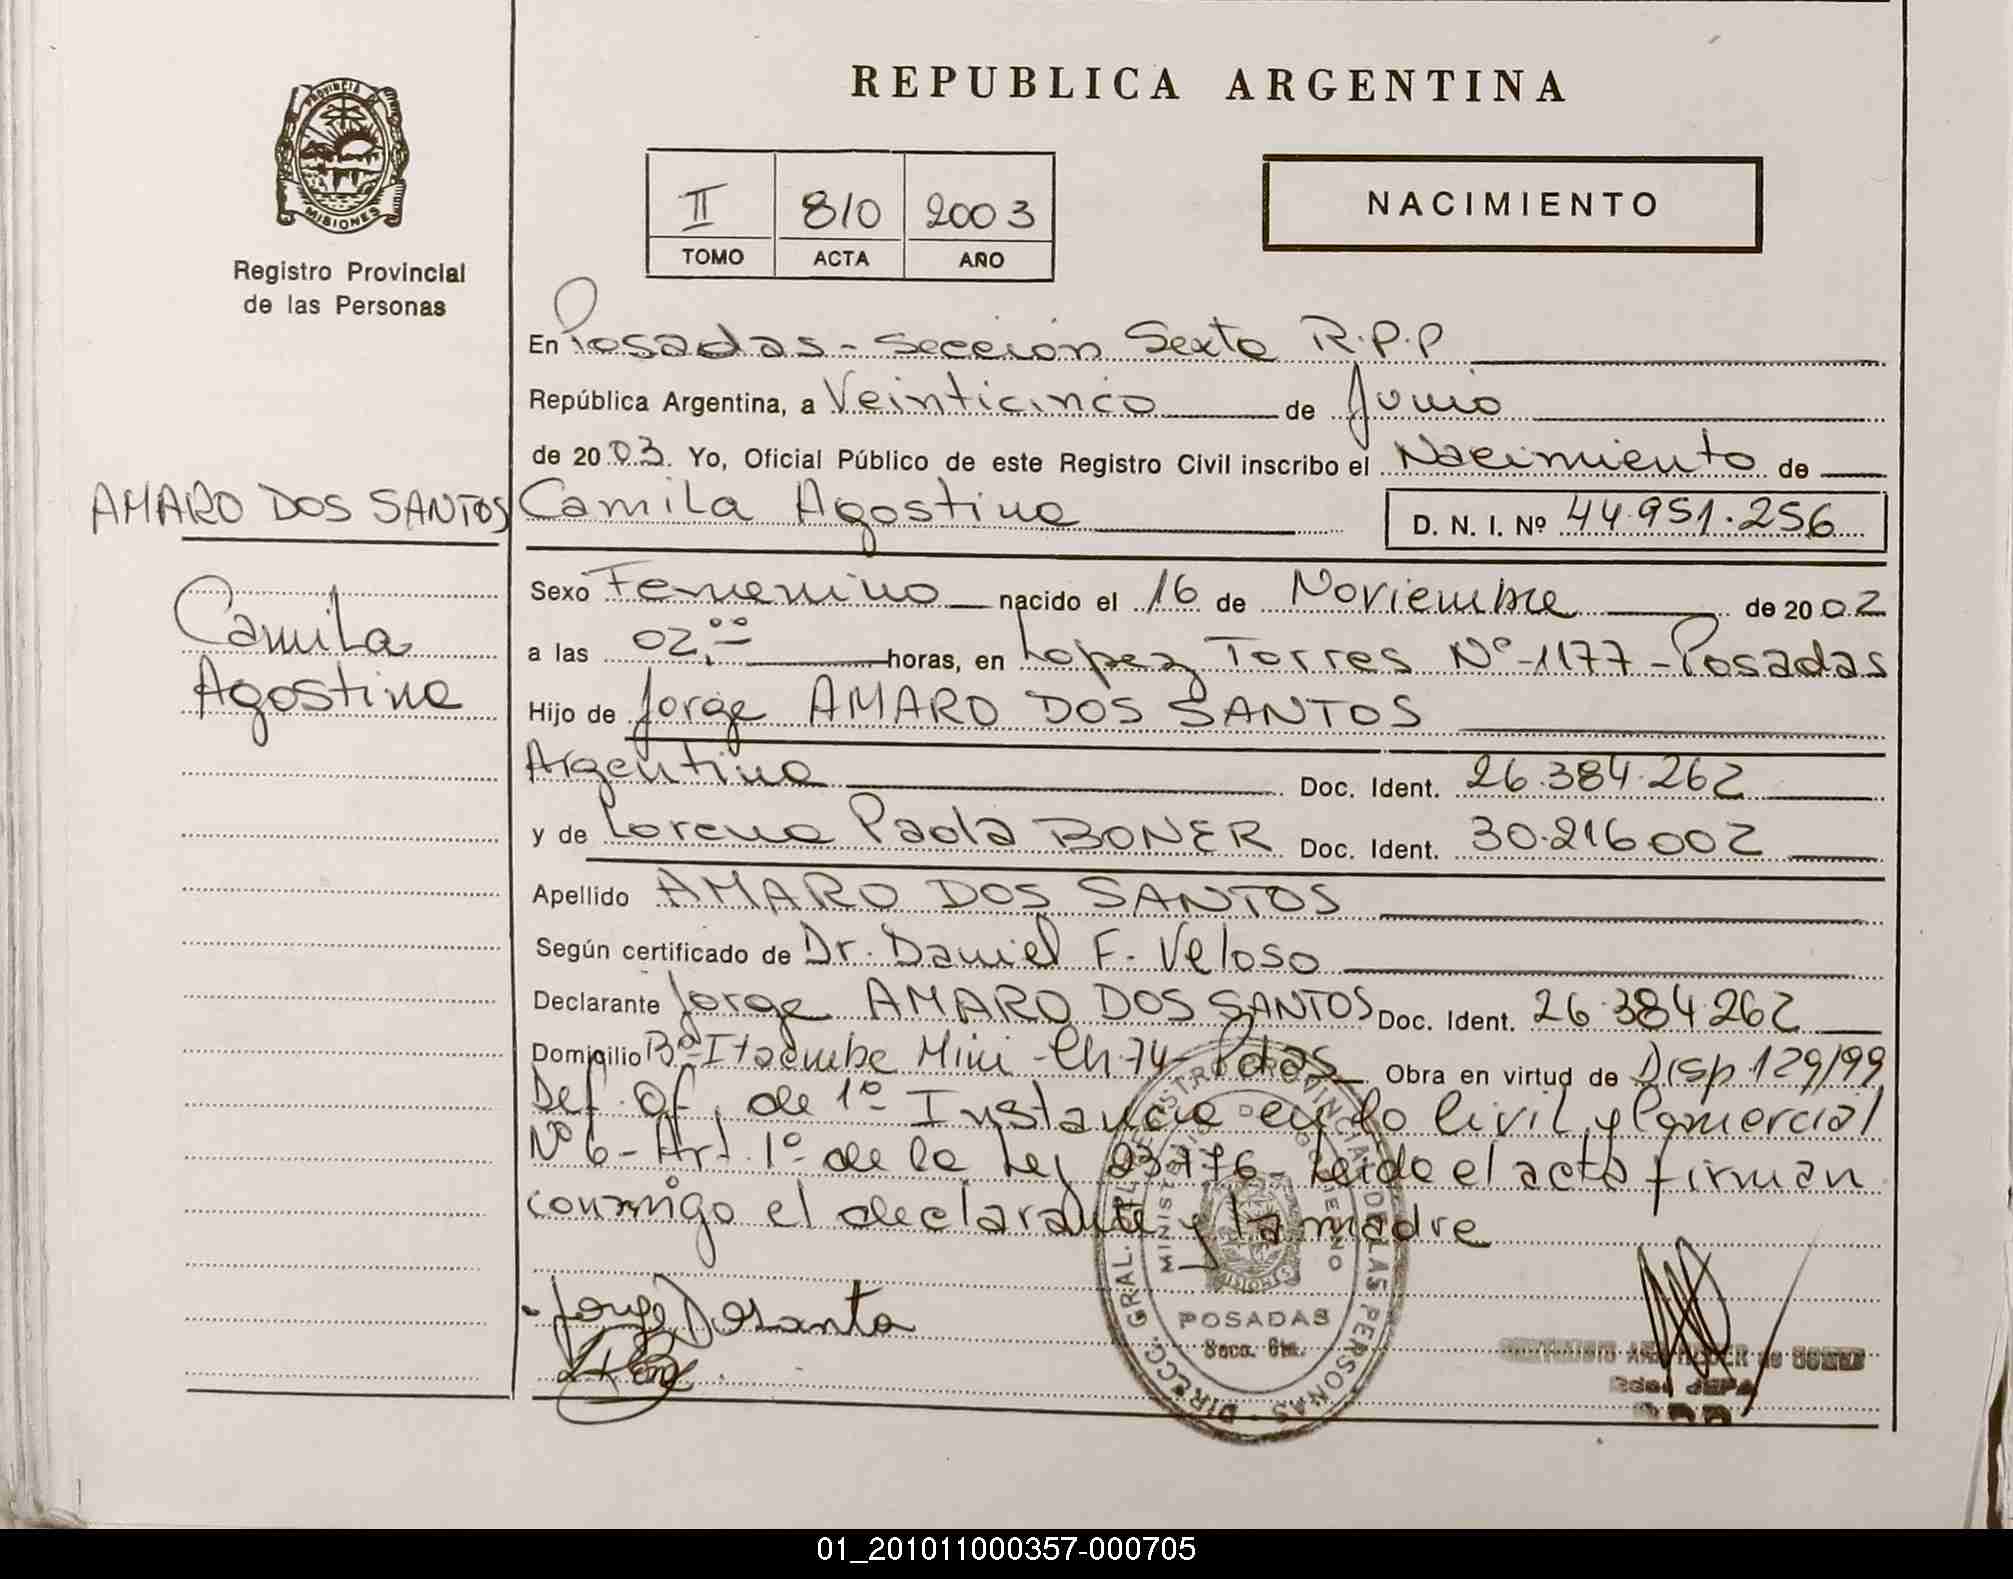 REPUBLICA ARGENTINA
PROVINCIA DE
MISIONES
Registro Provincial
de las Personas
II 810 2003
TOMO ACTA AÑO
NACIMIENTO
En Posadas - Sección Sexta R.P.P
República Argentina, a Veinticinco de Junio
de 2003. Yo, Oficial Público de este Registro Civil inscribo el Nacimiento de
AMARO DOS SANTOS
Camila Agostina
D. N. I. Nº 44.951.256
Camila
Agostina
Sexo Femenino nacido el 16 de Noviembre de 2002
a las 02,00 horas, en Lopez Torres Nº-1177-Posadas
Hijo de Jorge AMARO DOS SANTOS
Argentina Doc. Ident. 26.384.262
y de Lorena Paola BONER Doc. Ident. 30.216.002
Apellido AMARO DOS SANTOS
Según certificado de Dr. Daniel F. Veloso
Declarante Jorge AMARO DOS SANTOS Doc. Ident. 26.384.262
Domicilio Bº Itaembe Mini - Ch. 74 - Pdas Obra en virtud de Disp 129/99
Def. Of. de 1º Instancia en lo Civil y Comercial
Nº 6 - Art. 1º de la Ley 23776 - Leido el acta firman
conmigo el declarante y la madre
Jorge Dosanto
DIRECC. GRAL. DEL REGISTRO PROVINCIAL DE LAS PERSONAS
MINISTERIO DE GOBIERNO
MISIONES
POSADAS
Secc. 6ta.
JEFA
01_201011000357-000705